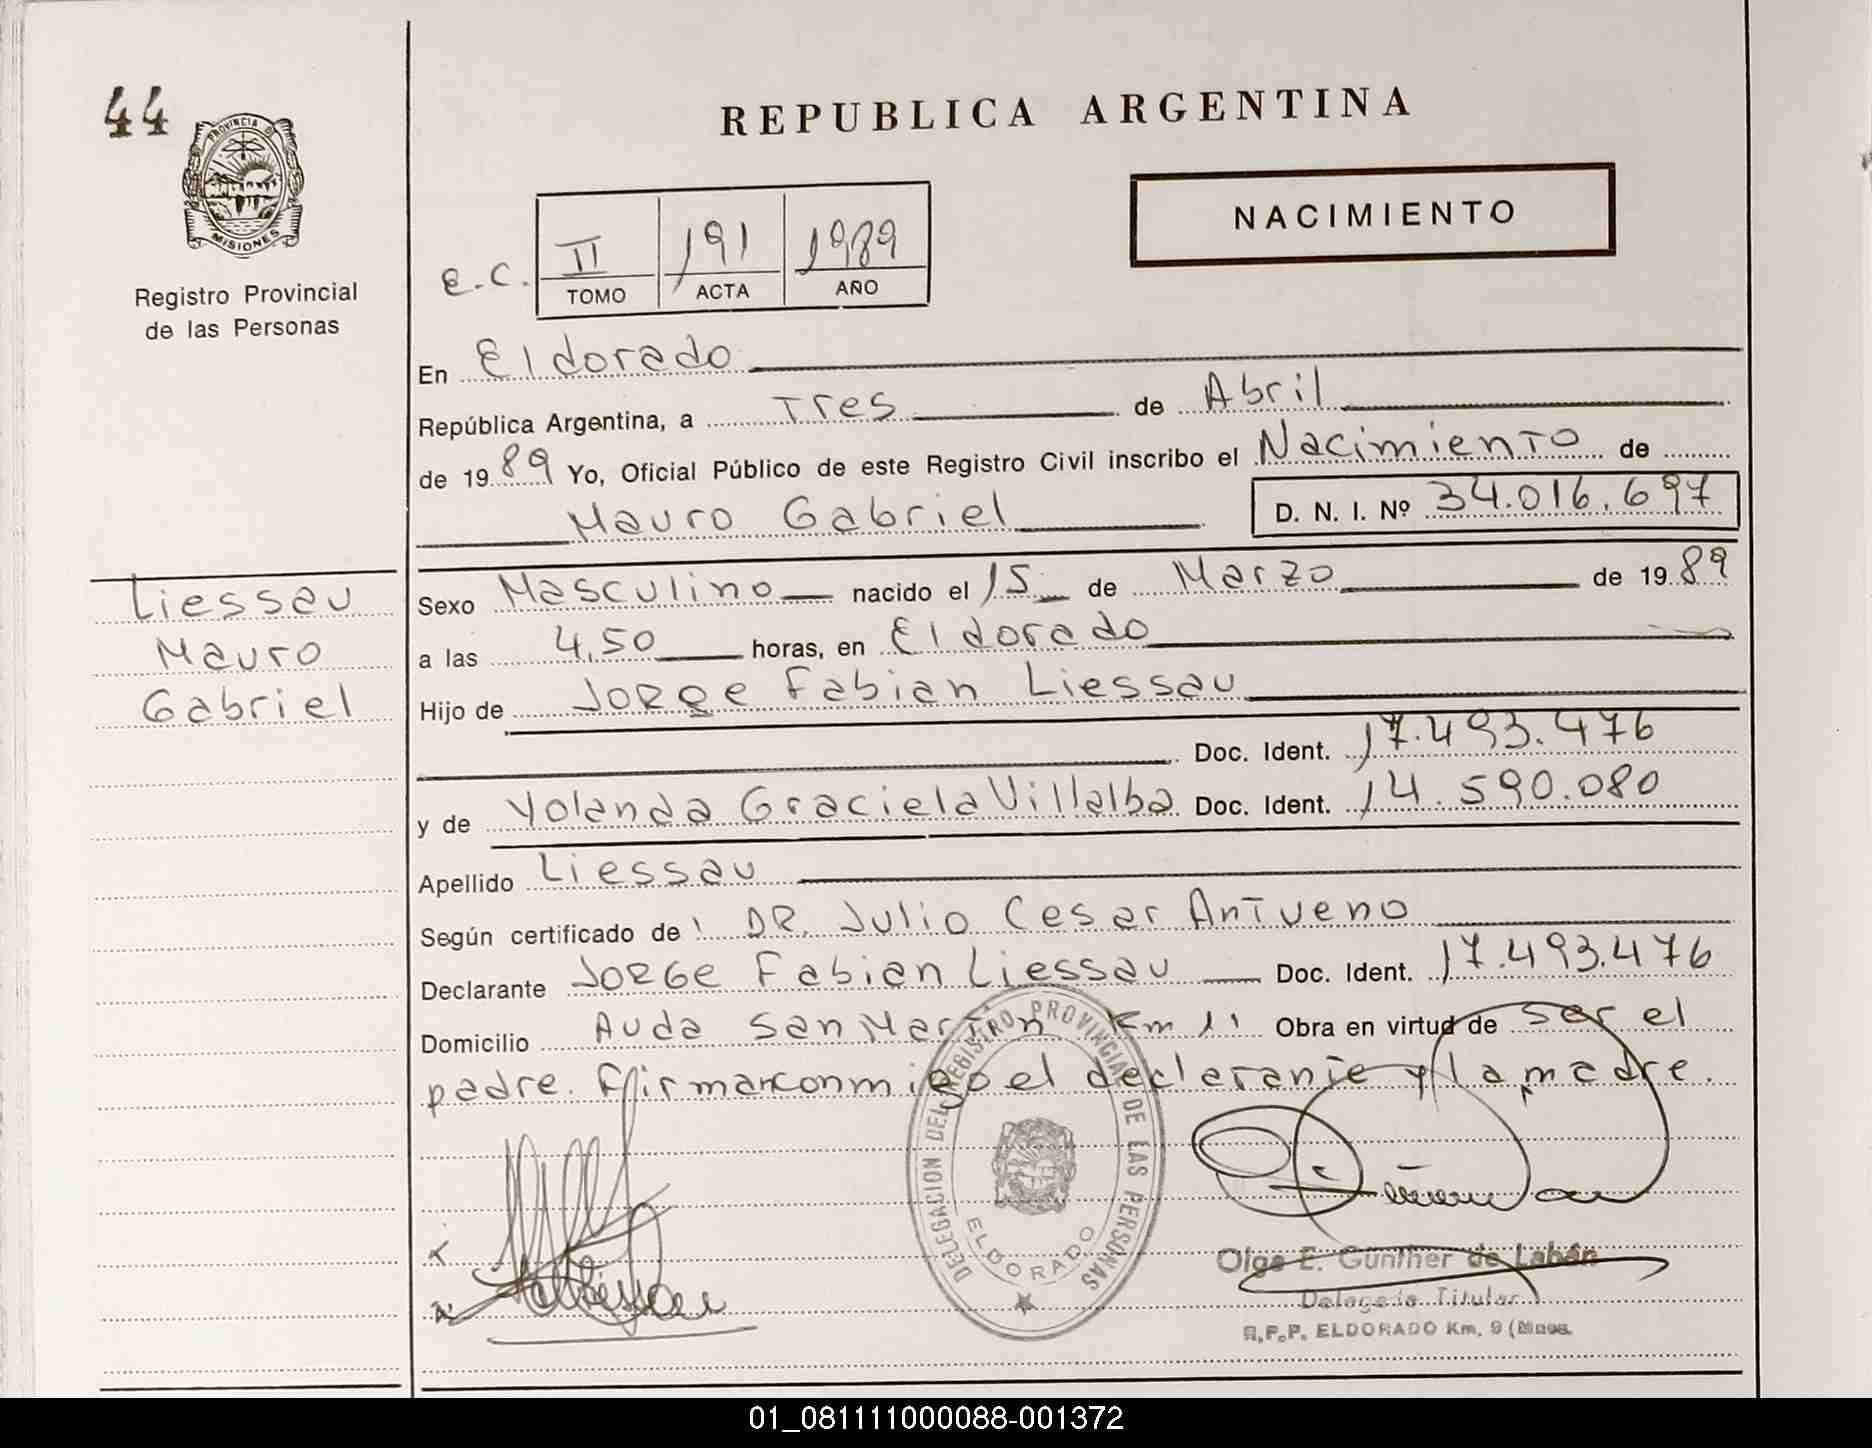 44
PROVINCIA DE
MISIONES
Registro Provincial
de las Personas
REPUBLICA ARGENTINA
NACIMIENTO
E.C. II 191 1989
TOMO ACTA AÑO
En Eldorado
República Argentina, a Tres de Abril
de 1989 Yo, Oficial Público de este Registro Civil inscribo el Nacimiento de
Mauro Gabriel D. N. I. Nº 34.016.697
Liessau
Mauro
Gabriel
Sexo Masculino nacido el 15 de Marzo de 1989
a las 4,50 horas, en Eldorado
Hijo de Jorge Fabian Liessau
Doc. Ident. 17.493.476
y de Yolanda Graciela Villalba Doc. Ident. 14.590.080
Apellido Liessau
Según certificado de DR. Julio Cesar Antueno
Declarante Jorge Fabian Liessau Doc. Ident. 17.493.476
Domicilio Avda San Martin Km 11 Obra en virtud de ser el
padre. Firman conmigo el declarante y la madre.
DELEGACION DEL REGISTRO PROVINCIAL DE LAS PERSONAS
ELDORADO
Olga E. Günther de Labán
Delegada Titular
R.P.P. ELDORADO Km. 9 (Mnes.
01_081111000088-001372